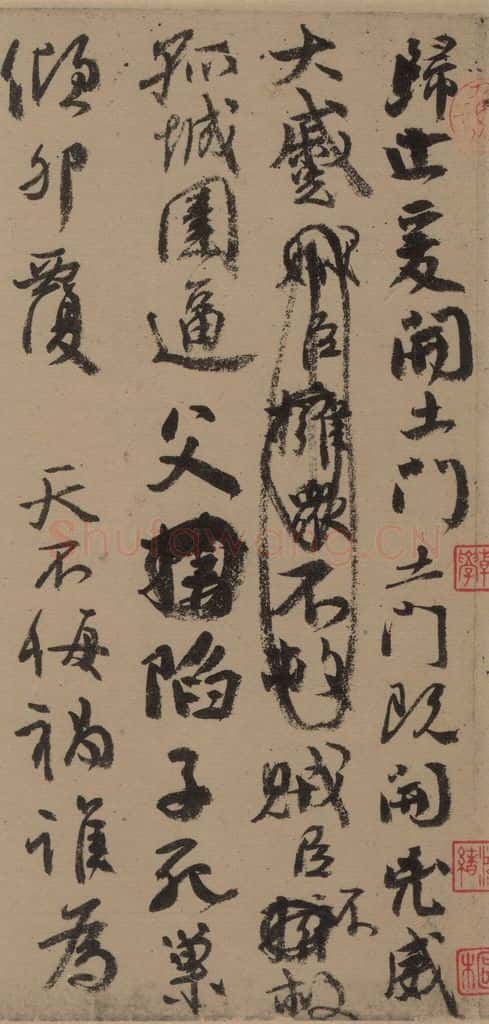 歸止爰開土門土門既開兇威
大蹙賊臣擁眾不救賊臣不救
孤城圍逼父陷子死巢
傾卵覆 天不悔禍誰為
Shufawang.CN